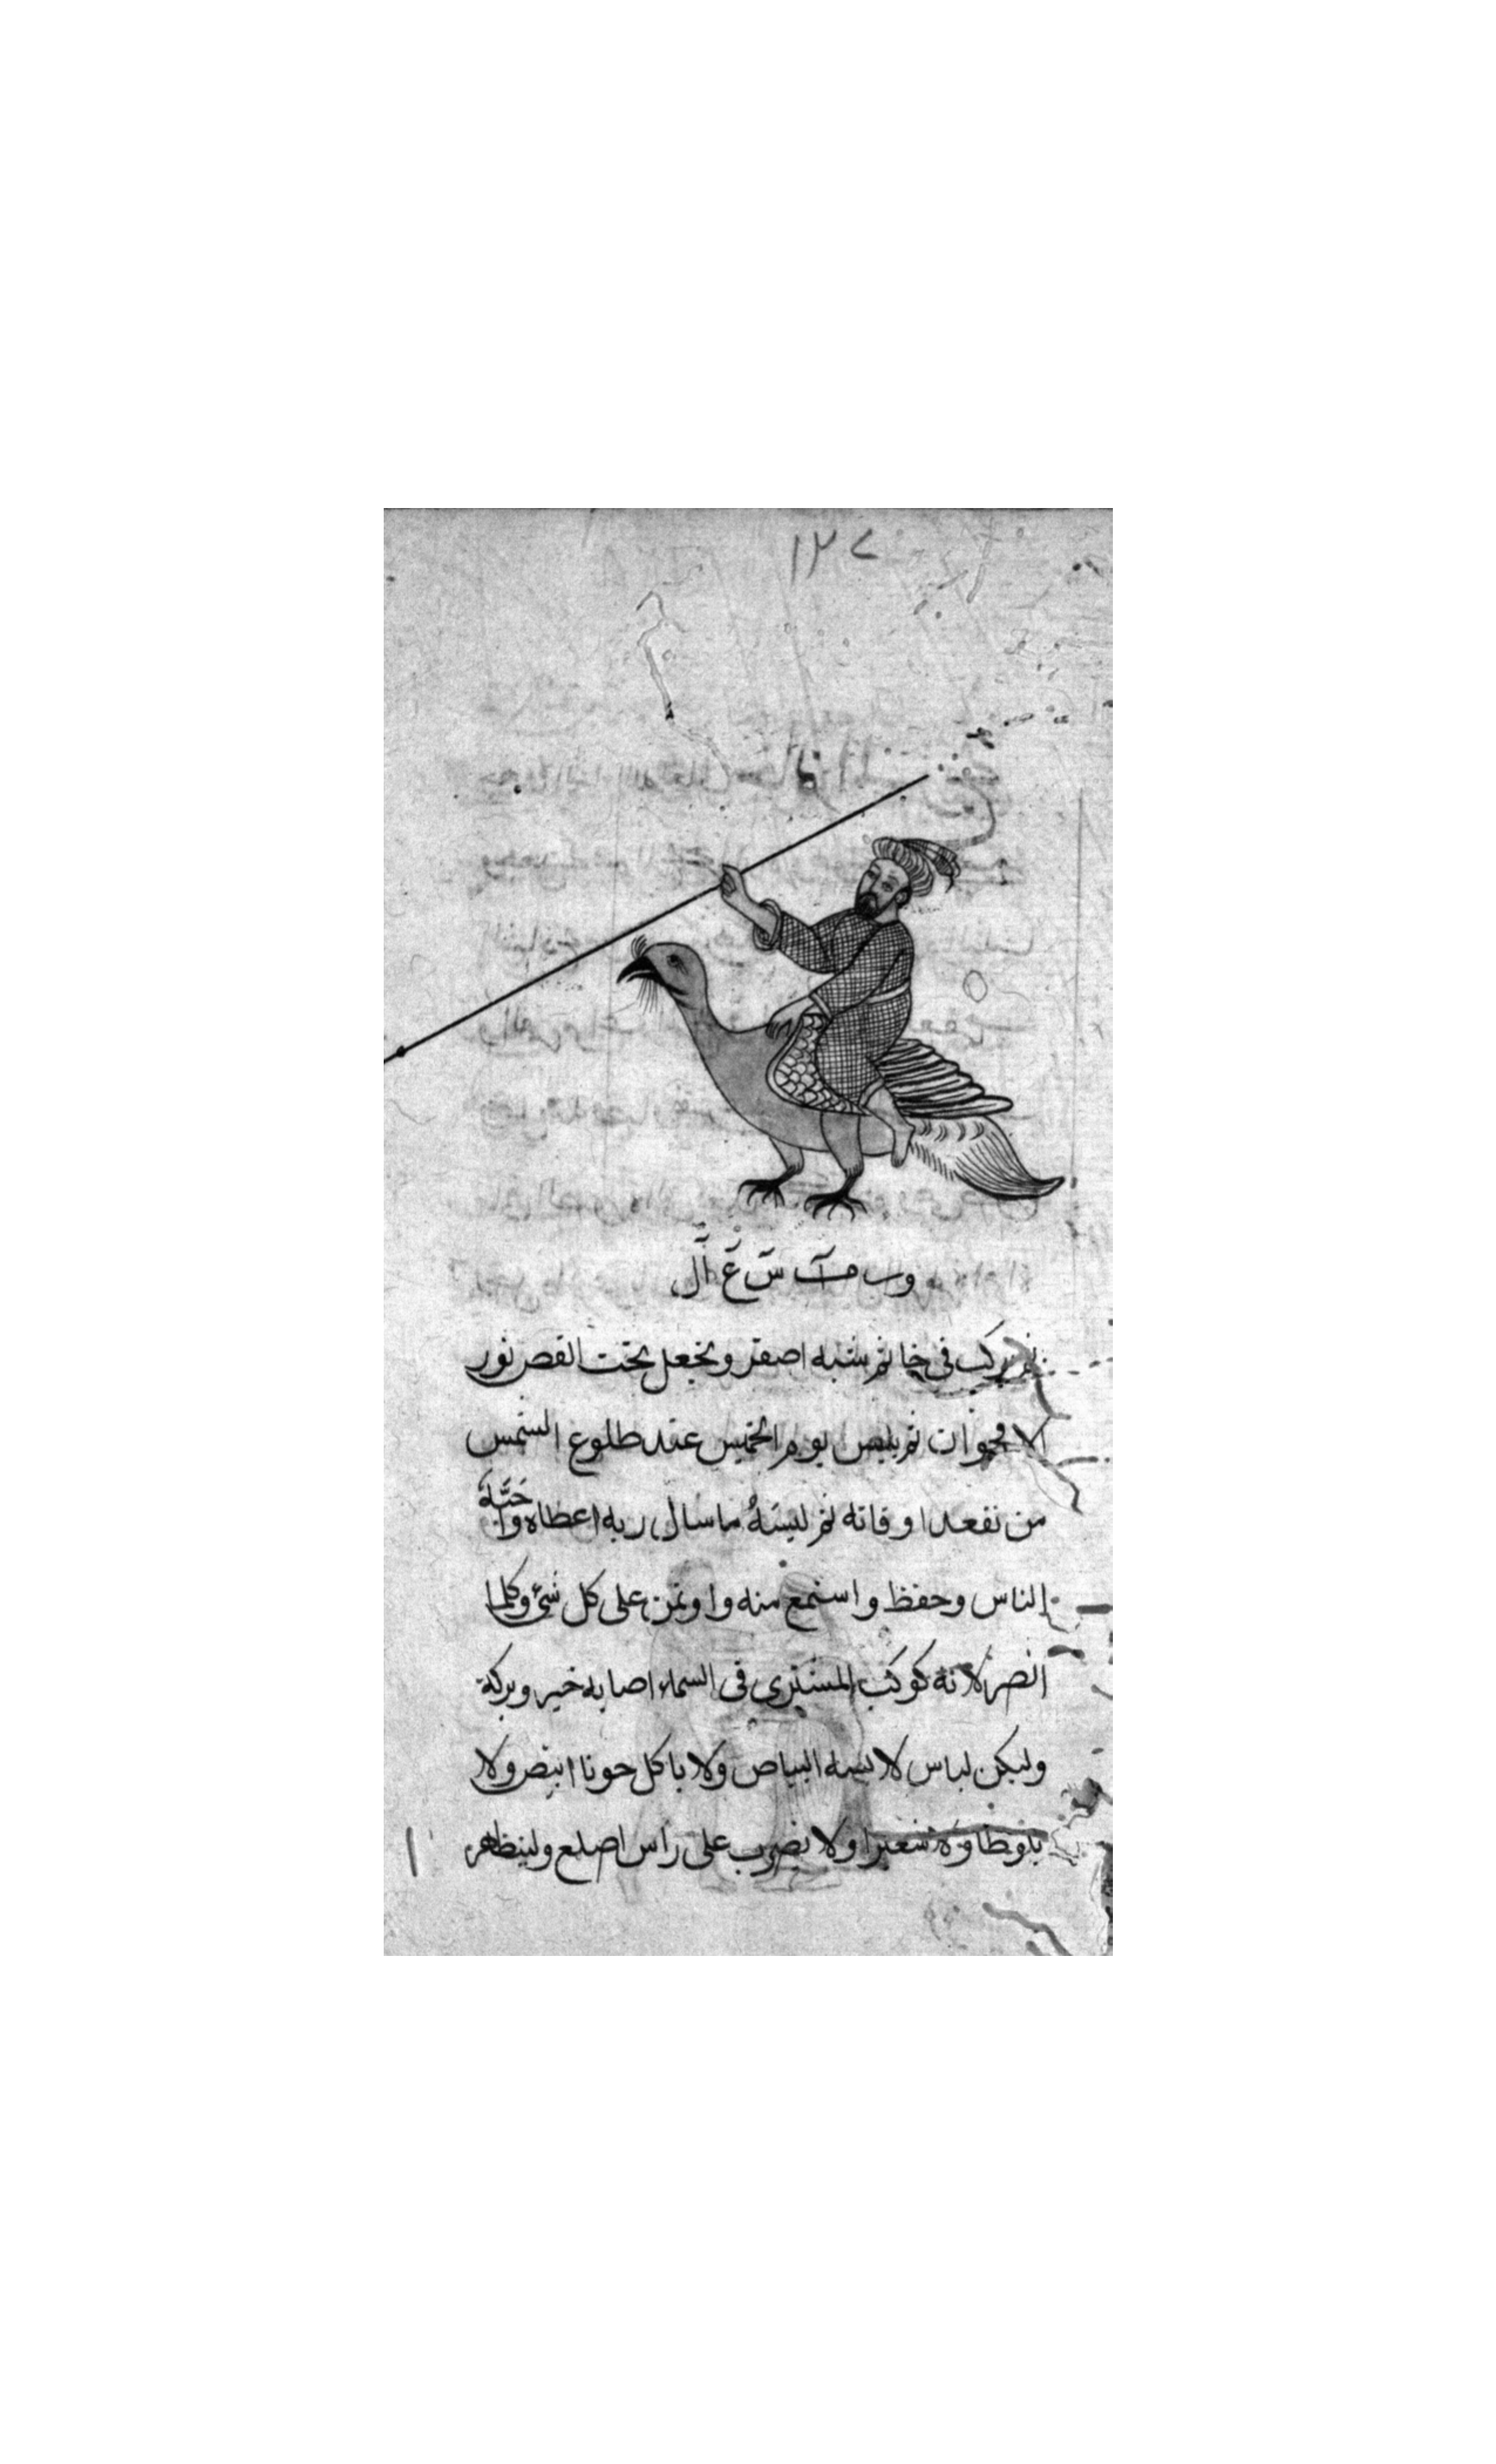 ١٢٧
ثم يركب فى خاتم شبه اصفر ويجعل تحت الفص نور
الاقحوان ثم يلبس يوم الخميس عند طلوع الشمس
من فعل اوقاته ثم لبسهُ ما سال ربه اعطاه واحَبَّهُ
الناس وحفظ واستمع منه واوتمن على كل شئ وكلما
انصر لانه كوكب المشترى فى السماء اصابه خير وبركة
وليكن لباس لابسه البياض ولا ياكل حوتا ابيض ولا
شعيرا ولا يضرب على راس اصلع ولينظاهر